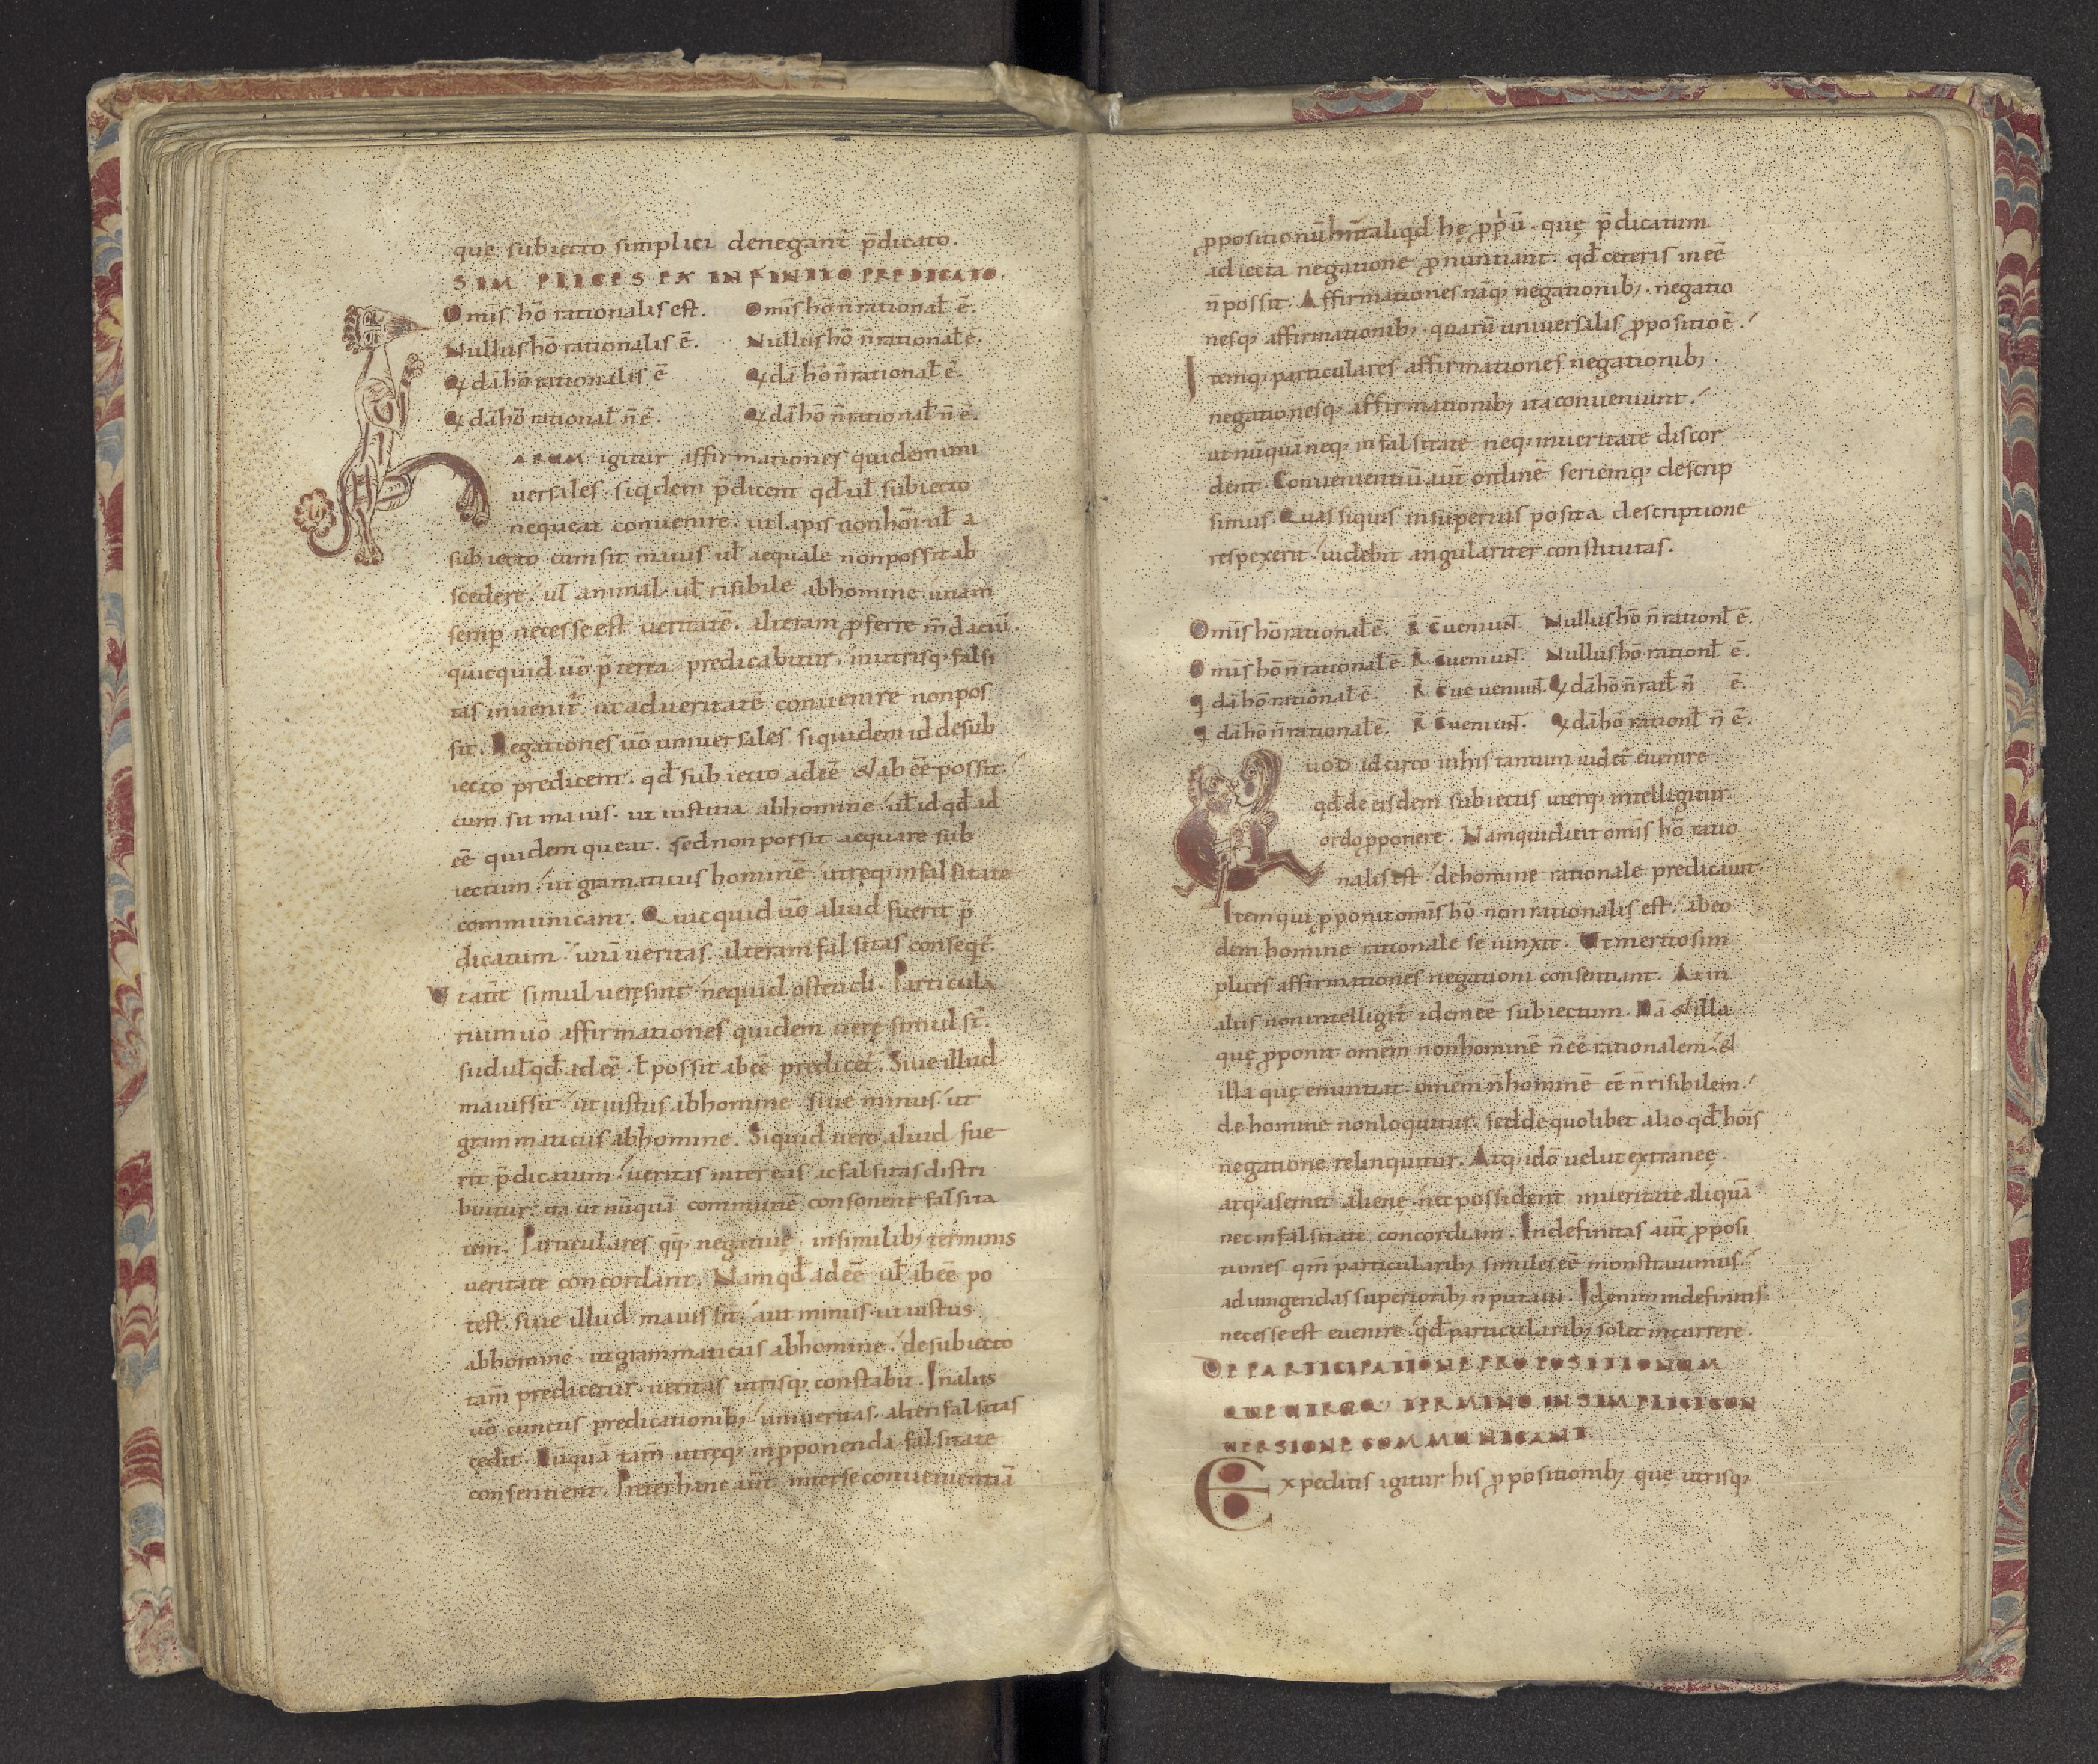 que subiecto simplici denegant᷑ p̄dicato.
SIMPLICES EX INFINITO PREDICATO.
Omīs hō rationalis est. Omīs hō n̄ rational̄ ē.
Nullus hō rationalis ē. Nullus hō n̄ rational̄ ē.
Qdā hō rationalis ē Qdā hō n̄ rational̄ ē.
Qdā hō rational̄ n̄ ē. Qdā hō n̄ rational̄ n̄ ē.
HARUM igitur affirmationes quidem uni
uersales. siqdem p̄dicent qd̄ ul̄ subiecto
nequeat conuenire. ut lapis non hōi. ul̄ a
subiecto cum sit maius ul̄ aequale non possit ab
scedere. ul̄ animal. ul̄ risibile ab homine. unam
semp necesse est ueritatē. alteram p̱ferre m̄daciū.
quicquid uō p̄terea predicabitur. inutrisq; falsi
tas inuenit᷑. ut ad ueritatē conuenire non pos
sit. Negationes uō uniuersales siquidem id desub
iecto predicent. qd̄ subiecto ad eē & ab eē possit.
cum sit maius. ut iustitia ab homine. ul̄ id qd̄ ad
eē quidem queat. sed non possit aequare sub
iectum. ut gramaticus hominē. utręq; in falsitate
communicant. Quicquid uō aliud fuerit p̄
dicatum. unā ueritas. alteram falsitas conseqt᷑.
Ut aūt simul uerę sint. nequid ostendi. Particula
rium uō affirmationes quidem uerę simul st̄.
sud ul̄ qd̄ ad eē. l̄ possit ab eē predicet᷑. Siue illud
maius sit. ut iustus ab homine. siue minus. ut
grammaticus ab homine. Siquid uero aliud fue
rit p̄dicatum. ueritas inter eas ac falsitas distri
buitur. ita ut nūquā communē consonent falsita
tem. Particulares qq; negatiuę. in similib; terminis
ueritate concordant. Nam qd̄ ad eē ul̄ ab eē po
test. siue illud maius sit. aut minus. ut iustus
ab homine. ut grammaticus ab homine. de subiecto
tam̄ predicetur. ueritas utrisq; constabit. In aliis
uō cunctis predicationib; uni ueritas. alteri falsitas
cędit. Nūquā tam̄ utręq; in p̱ponenda falsitate
consentient. Preter hanc aūt inter se conuenientiā
p̱positionū aliqd hę p̱p̱riū. quę p̄dicatum
adiecta negatione p̱nuntiant. qd̄ ceteris in eē
n̄ possit. Affirmationes nāq; negationib;. negatio
nesq; affirmationib;. quarū uniuersalis p̱positio ē.
Itemq; particulares affirmationes negationib;.
negationesq; affirmationib; ita conueniunt.
ut nūquā neq; in falsitate neq; in ueritate discor
dent. Conuenientiū aūt ordinē seriemq; descrip
simus. Quas siquis in superius posita descriptione
respexerit. uidebit angulariter constitutas.
Omīs hō rational̄ ē. R̄ c̄ueniunt᷑. Nullus hō n̄ rationl̄ ē.
Omīs hō n̄ rational̄ ē. R̄ c̄ueniunt᷑. Nullus hō rationl̄ ē.
Qdā hō rational̄ ē. R̄ c̄ue ueniunt᷑. Qdā hō n̄ ratl̄ n̄ ē.
Qdā hō n̄ rational̄ ē. R̄ c̄ueniunt᷑. Qdā hō rationl̄ n̄ ē.
QUOD idcirco in his tantum uidet᷑ euenire
qd̄ de eisdem subiectis uterq; intelligitur
ordo p̱ponere. Nam qui dicit omīs hō ratio
nalis est. de homine rationale predicauit.
Item qui p̱ponit omīs hō non rationalis est. ab eo
dem homine rationale seiunxit. Ut merito sim
plices affirmationes negationi consentiant. At in
aliis non intelligit᷑ idem eē subiectum. Nā & illa
quę p̱ponit omēm non hominē n̄ eē rationalem. &
illa quę enuntiat omēm n̄ hominē eē n̄ risibilem.
de homine non loquitur. sed de quolibet alio qd̄ hoīs
negatione relinquitur. Atq; idō uelut extraneę.
atq; a semet alienę. nec possident in ueritate aliquā
nec in falsitate concordiam. Indefinitas aūt p̱posi
tiones. qm̄ particularib; similes eē monstrauimus.
adiungendas superiorib; n̄ putaui. Id enim indefinitis
necesse est euenire. qd̄ particularib; solet incurrere.
DE PARTICIPATIONE PROPOSITIONUM
QUE UTROQ; TERMINO IN SIMPLICI CON
UERSIONE COMMUNICANT.
Expeditis igitur his p̱positionib; quę utrisq;